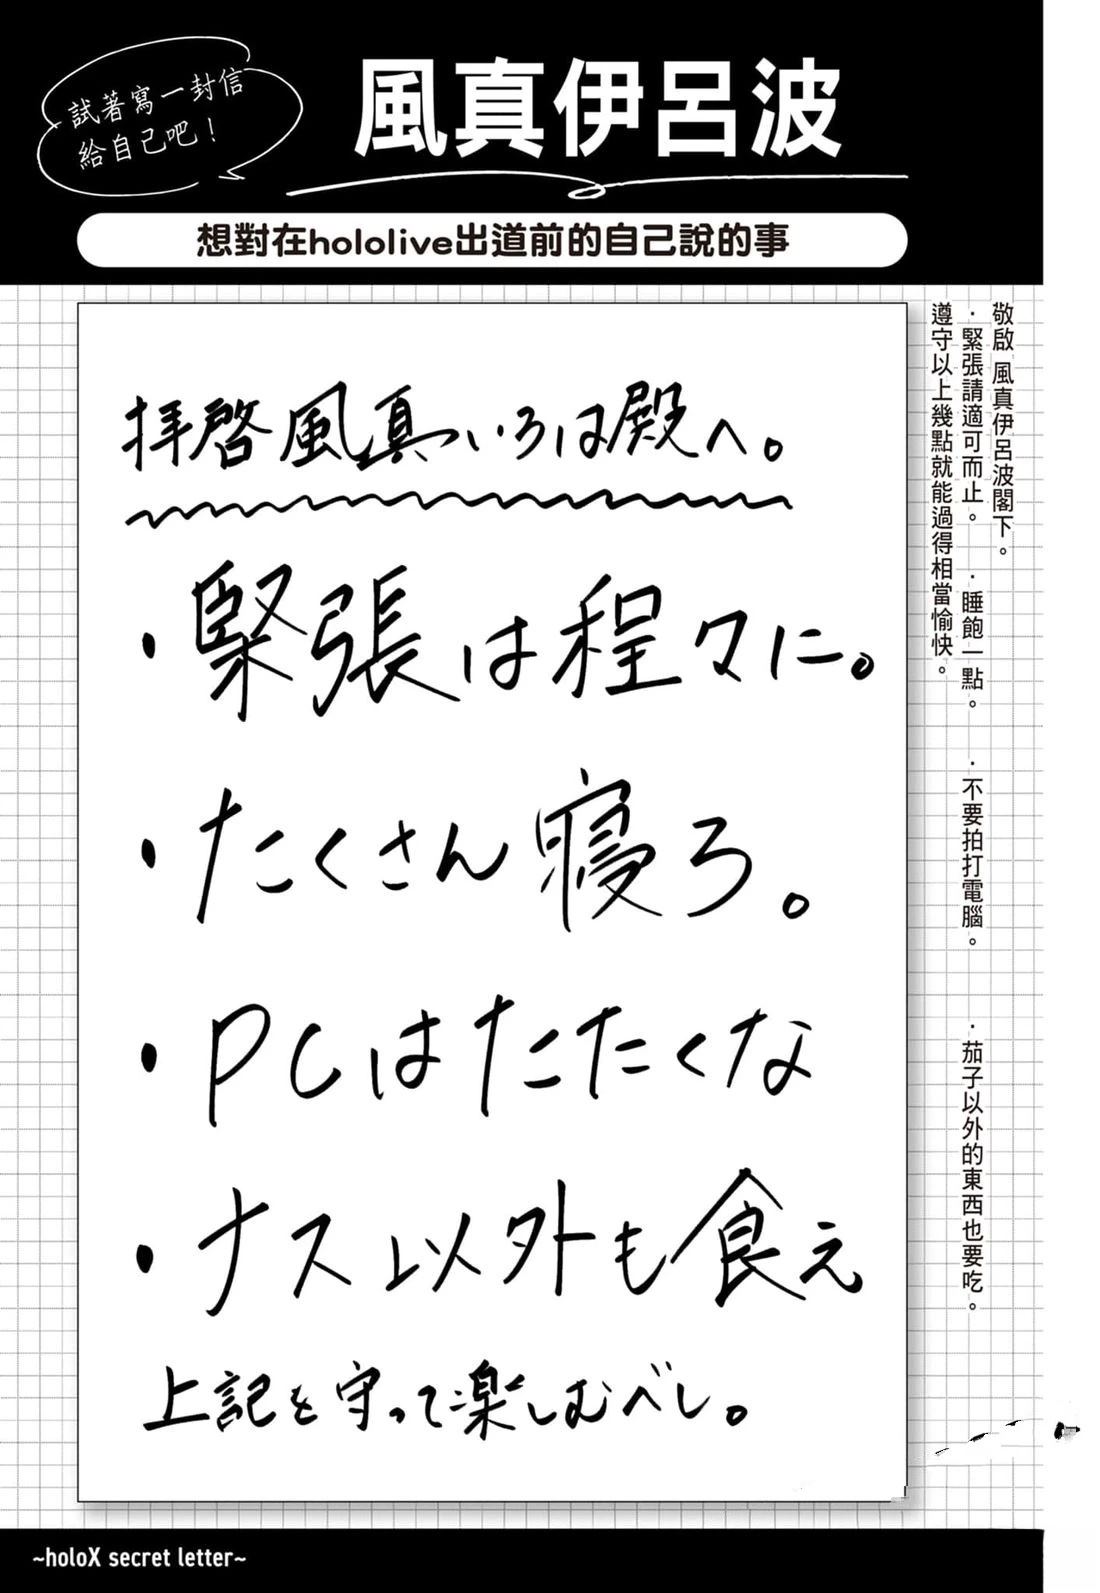 試著寫一封信
給自己吧！
風真伊呂波
想對在hololive出道前的自己說的事
拝啓風真いろは殿へ。
・緊張は程々に。
・たくさん寝ろ。
・PCはたたくな
・ナス以外も食え
上記を守って楽しむべし。
敬啟 風真伊呂波閣下。
・緊張請適可而止。 ・睡飽一點。 ・不要拍打電腦。 ・茄子以外的東西也要吃。
遵守以上幾點就能過得相當愉快。
~holoX secret letter~